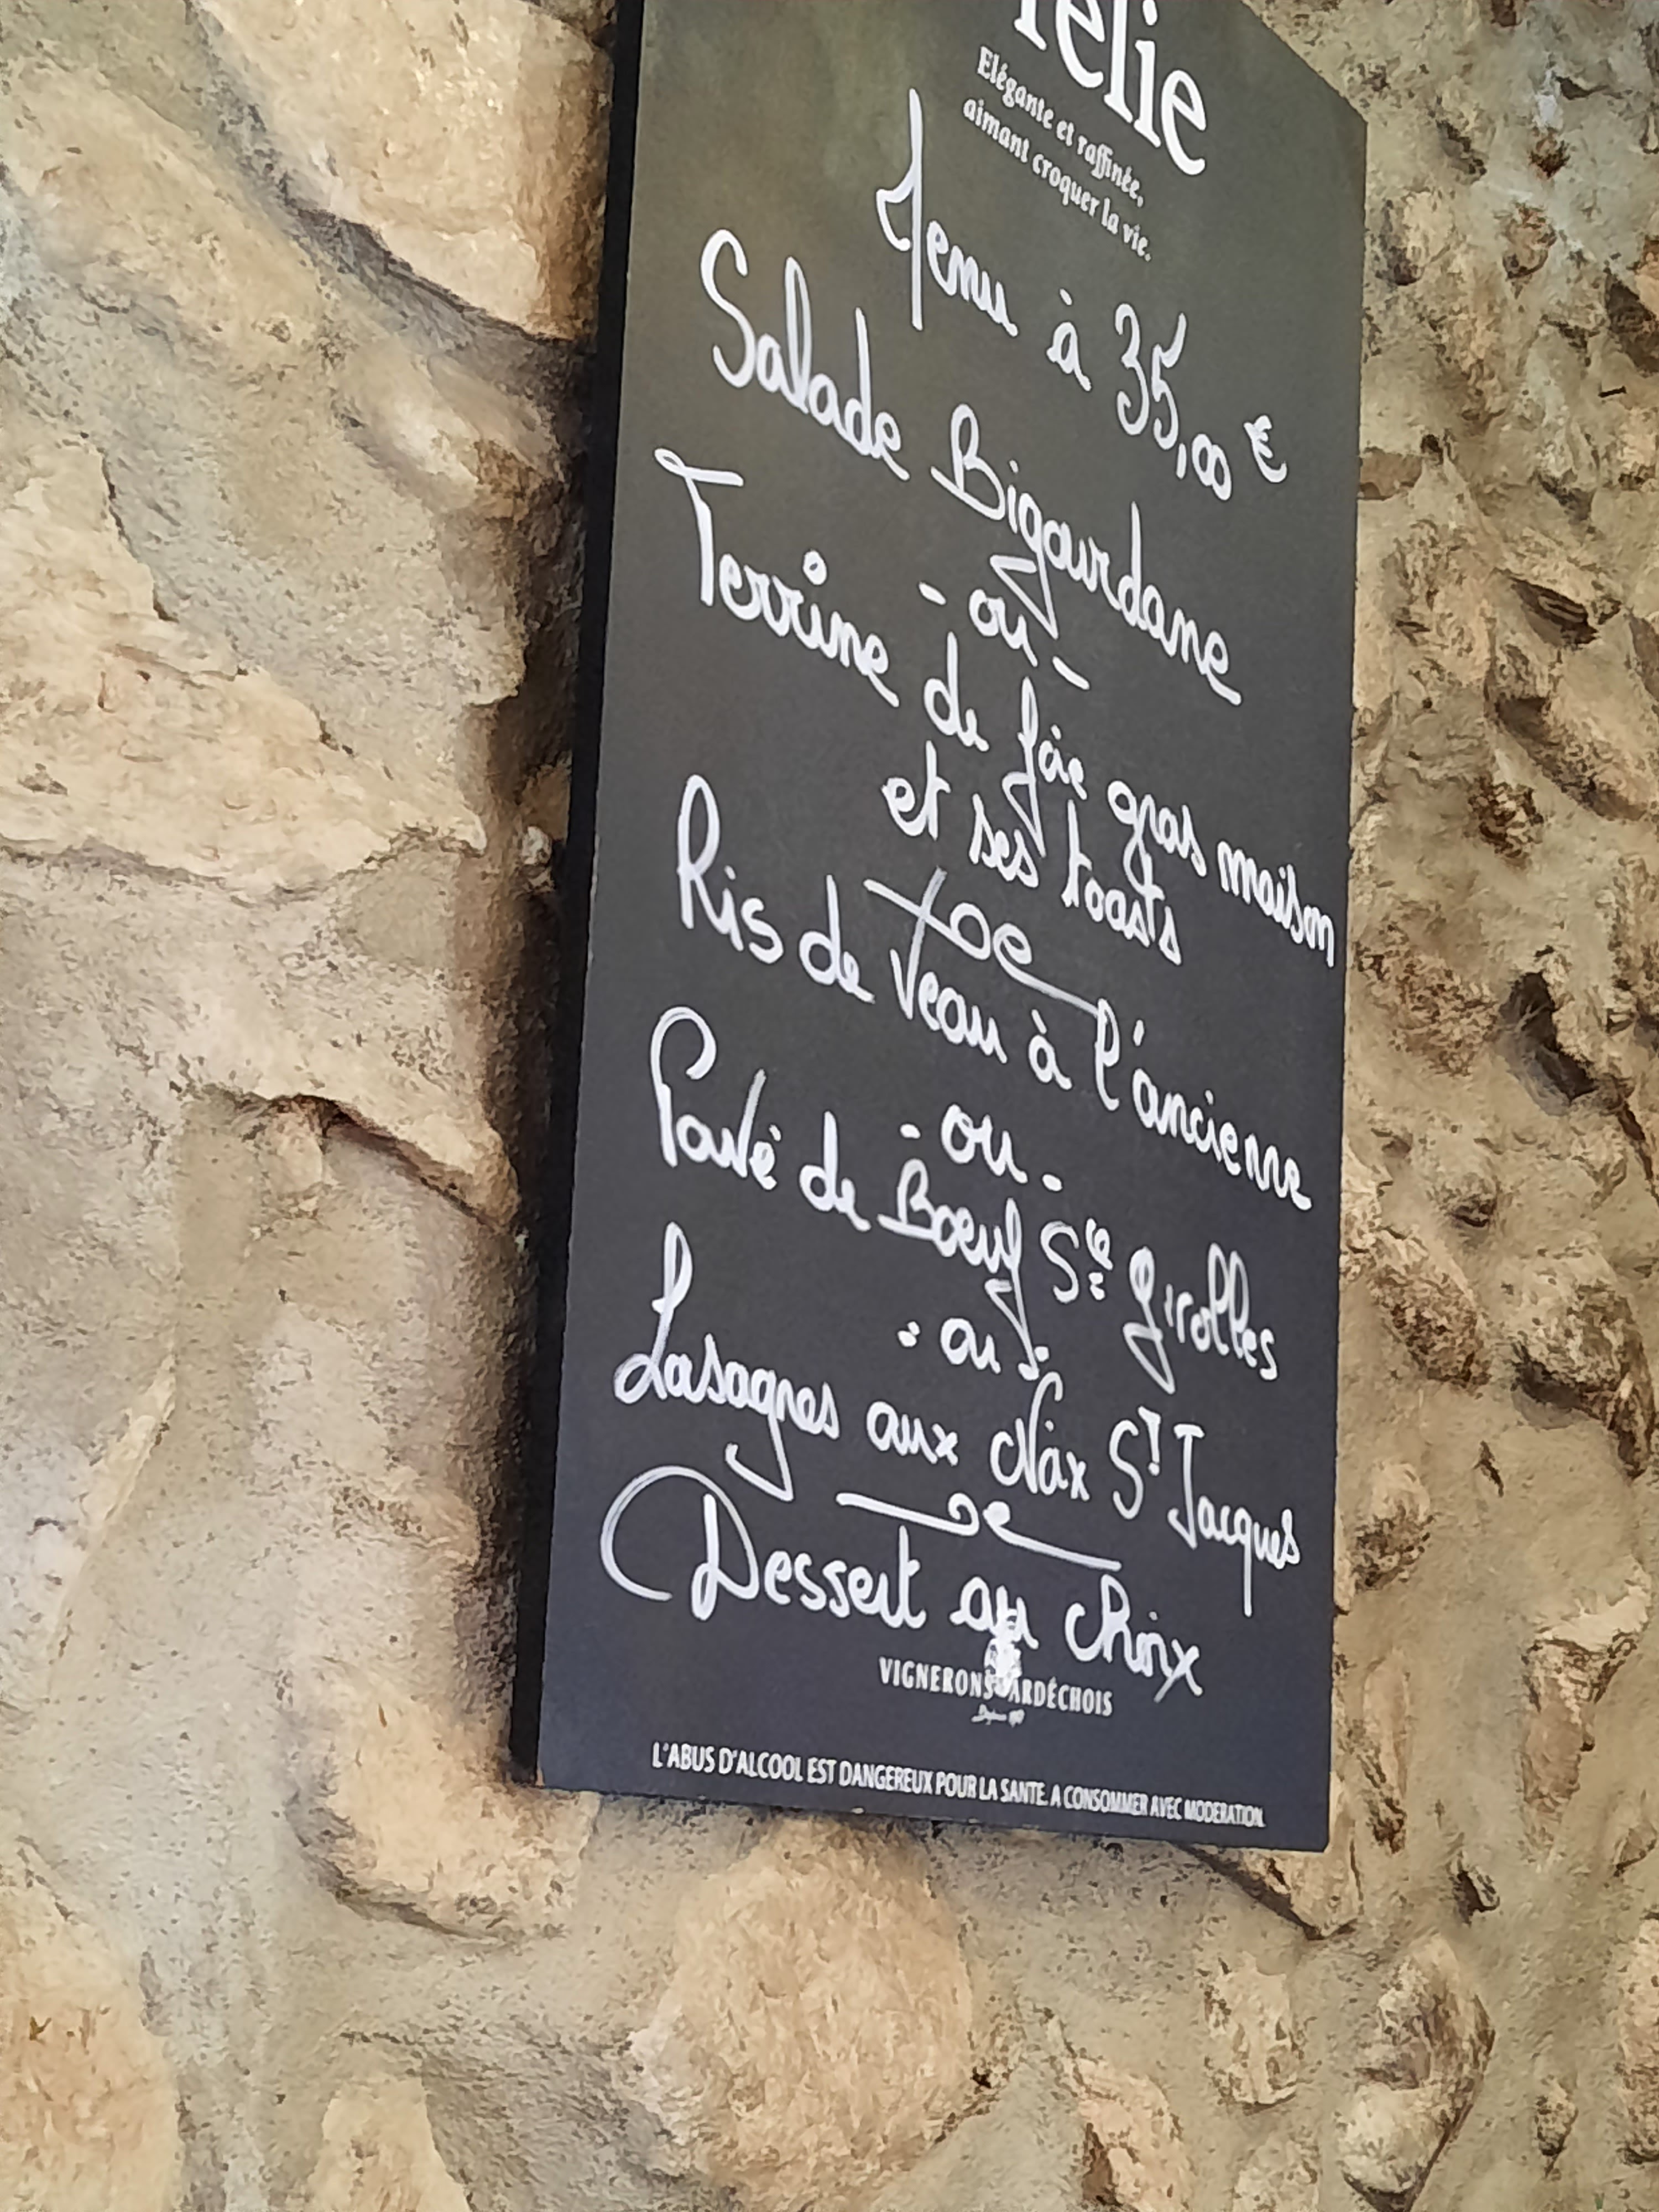 élie
Elégante et raffinée,
aimant croquer la vie.
Menu à 35,00 €
Salade Bigourdane
- ou -
Terrine de foie gras maison
et ses toasts
Ris de Veau à l'ancienne
- ou -
Pavé de Boeuf Sce Girolles
- ou -
Lasagnes aux Noix St Jacques
Dessert au choix
VIGNERONS ARDÉCHOIS
L'ABUS D'ALCOOL EST DANGEREUX POUR LA SANTE. A CONSOMMER AVEC MODERATION.